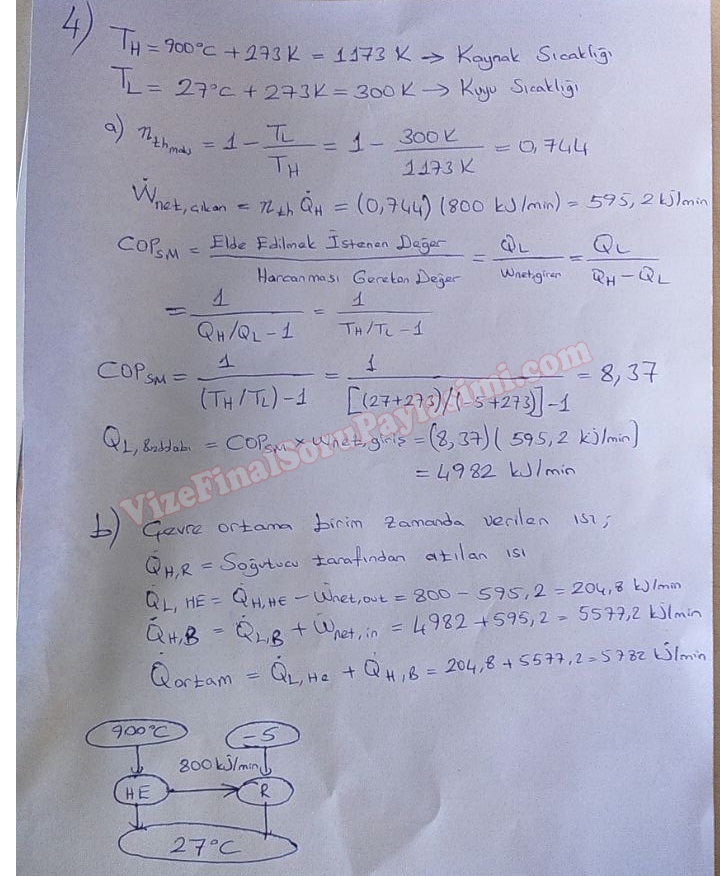 4) TH = 900°C + 273K = 1173 K → Kaynak Sıcaklığı
TL = 27°C + 273K = 300K → Kuyu Sıcaklığı
a) ηth maks = 1 - TL/TH = 1 - 300K/1173K = 0,744
Ẇnet,çıkan = ηth Q̇H = (0,744) (800 kJ/min) = 595,2 kJ/min
COPSM = Elde Edilmek İstenen Değer / Harcanması Gereken Değer = QL/Wnet,giren = QL/QH-QL
= 1/QH/QL-1 = 1/TH/TL-1
COPSM = 1/(TH/TL)-1 = 1/[(27+273)/(-5+273)]-1 = 8,37
QL, = COPSM × Wnet,giriş = (8,37) (595,2 kJ/min)
= 4982 kJ/min
VizeFinalSoruPaylasimi.com
b) Çevre ortama birim zamanda verilen ısı;
Q̇H,R = Soğutucu tarafından atılan ısı
Q̇L,HE = Q̇H,HE - Ẇnet,out = 800 - 595,2 = 204,8 kJ/min
Q̇H,B = Q̇L,B + Ẇnet,in = 4982 + 595,2 = 5577,2 kJ/min
Q̇ortam = Q̇L,He + Q̇H,B = 204,8 + 5577,2 = 5782 kJ/min
900°C -5
800 kJ/min
HE R
27°C